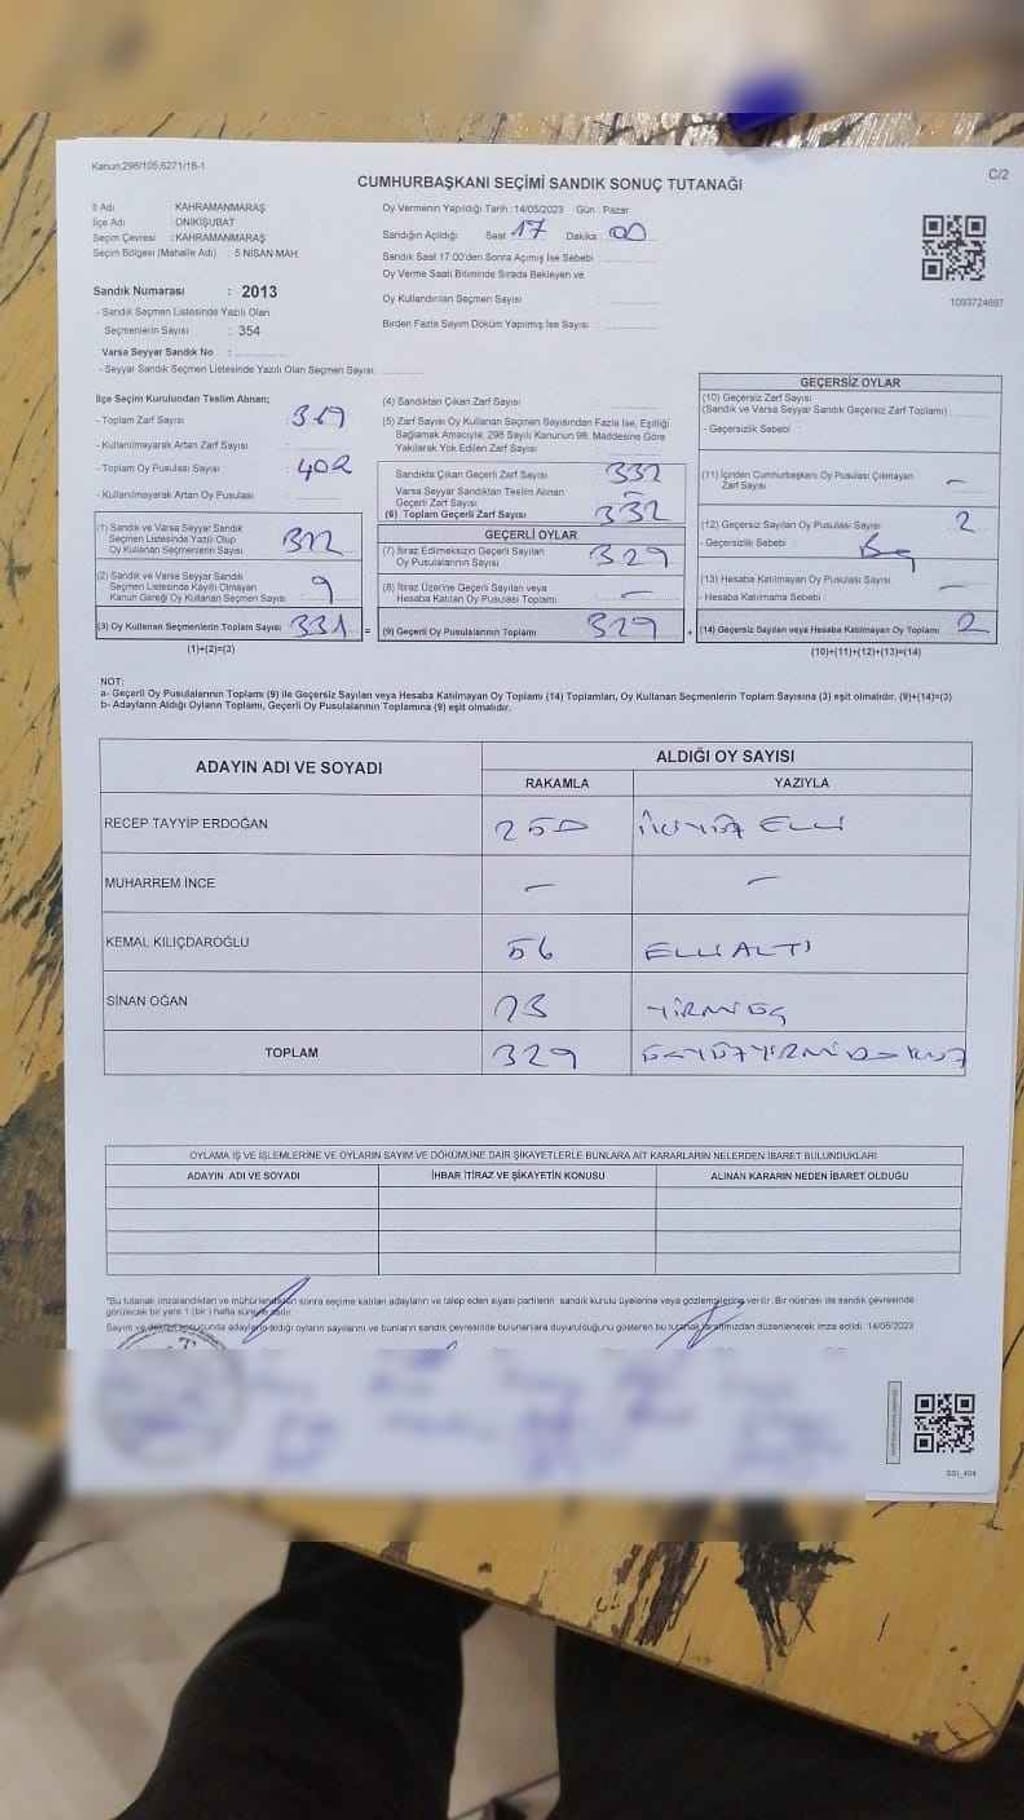 Kanun:298/105,6271/18-1
C/2
CUMHURBAŞKANI SEÇİMİ SANDIK SONUÇ TUTANAĞI
İl Adı : KAHRAMANMARAŞ
İlçe Adı : ONİKİŞUBAT
Seçim Çevresi : KAHRAMANMARAŞ
Seçim Bölgesi (Mahalle Adı) : 5 NİSAN MAH.
Sandık Numarası : 2013
- Sandık Seçmen Listesinde Yazılı Olan
Seçmenlerin Sayısı : 354
Varsa Seyyar Sandık No :
- Seyyar Sandık Seçmen Listesinde Yazılı Olan Seçmen Sayısı
Oy Vermenin Yapıldığı Tarih :14/05/2023 Gün : Pazar
Sandığın Açıldığı Saat 17 Dakika 00
Sandık Saat 17.00'den Sonra Açımış İse Sebebi
Oy Verme Saati Bitiminde Sırada Bekleyen ve
Oy Kullandırılan Seçmen Sayısı
Birden Fazla Sayım Döküm Yapılmış İse Sayısı
1093724697
İlçe Seçim Kurulundan Teslim Alınan;
- Toplam Zarf Sayısı
- Kullanılmayarak Artan Zarf Sayısı
- Toplam Oy Pusulası Sayısı : 402
- Kullanılmayarak Artan Oy Pusulası
(1) Sandık ve Varsa Seyyar Sandık
Seçmen Listesinde Yazılı Olup
Oy Kullanan Seçmenlerin Sayısı 322
(2) Sandık ve Varsa Seyyar Sandık
Seçmen Listesinde Kayıtlı Olmayan
Kanun Gereği Oy Kullanan Seçmen Sayısı 9
(3) Oy Kullanan Seçmenlerin Toplam Sayısı 331 =
(1)+(2)=(3)
(4) Sandıktan Çıkan Zarf Sayısı
(5) Zarf Sayısı Oy Kullanan Seçmen Sayısından Fazla İse, Eşitliği
Sağlamak Amacıyla, 298 Sayılı Kanunun 98. Maddesine Göre
Yakılarak Yok Edilen Zarf Sayısı
Sandıkta Çıkan Geçerli Zarf Sayısı 332
Varsa Seyyar Sandıktan Teslim Alınan
Geçerli Zarf Sayısı –
(6) Toplam Geçerli Zarf Sayısı 332
GEÇERLİ OYLAR
(7) İtiraz Edilmeksizin Geçerli Sayılan
Oy Pusulalarının Sayısı 329
(8) İtiraz Üzerine Geçerli Sayılan veya
Hesaba Katılan Oy Pusulası Toplamı –
(9) Geçerli Oy Pusulalarının Toplamı 329 +
GEÇERSİZ OYLAR
(10) Geçersiz Zarf Sayısı
(Sandık ve Varsa Seyyar Sandık Geçersiz Zarf Toplamı)
- Geçersizlik Sebebi
(11) İçinden Cumhurbaşkanı Oy Pusulası Çıkmayan
Zarf Sayısı –
(12) Geçersiz Sayılan Oy Pusulası Sayısı 2
- Geçersizlik Sebebi
(13) Hesaba Katılmayan Oy Pusulası Sayısı –
- Hesaba Katılmama Sebebi
(14) Geçersiz Sayılan veya Hesaba Katılmayan Oy Toplamı 2
(10)+(11)+(12)+(13)=(14)
NOT:
a- Geçerli Oy Pusulalarının Toplamı (9) ile Geçersiz Sayılan veya Hesaba Katılmayan Oy Toplamı (14) Toplamları, Oy Kullanan Seçmenlerin Toplam Sayısına (3) eşit olmalıdır. (9)+(14)=(3)
b- Adayların Aldığı Oyların Toplamı, Geçerli Oy Pusulalarının Toplamına (9) eşit olmalıdır.
ADAYIN ADI VE SOYADI
ALDIĞI OY SAYISI
RAKAMLA YAZIYLA
RECEP TAYYİP ERDOĞAN 250 İKİYÜZ ELLİ
MUHARREM İNCE – –
KEMAL KILIÇDAROĞLU 56 ELLİ ALTI
SİNAN OĞAN 23 YİRMİ ÜÇ
TOPLAM 329 ÜÇYÜZYİRMİDOKUZ
OYLAMA İŞ VE İŞLEMLERİNE VE OYLARIN SAYIM VE DÖKÜMÜNE DAİR ŞİKAYETLERLE BUNLARA AİT KARARLARIN NELERDEN İBARET BULUNDUKLARI
ADAYIN ADI VE SOYADI İHBAR İTİRAZ VE ŞİKAYETİN KONUSU ALINAN KARARIN NEDEN İBARET OLDUĞU
"Bu tutanak imzalandıktan ve mühürlendikten sonra seçime katılan adayların ve talep eden siyasi partilerin sandık kurulu üyelerine veya gözlemcilerine verilir. Bir nüshası ise sandık çevresinde
görülecek bir yere 1 (bir) hafta süreyle asılır.
Sayım ve döküm sonucunda adayların aldığı oyların sayılarını ve bunların sandık çevresinde bulunanlara duyurulduğunu gösteren bu tutanak tarafımızdan düzenlenerek imza edildi. 14/05/2023